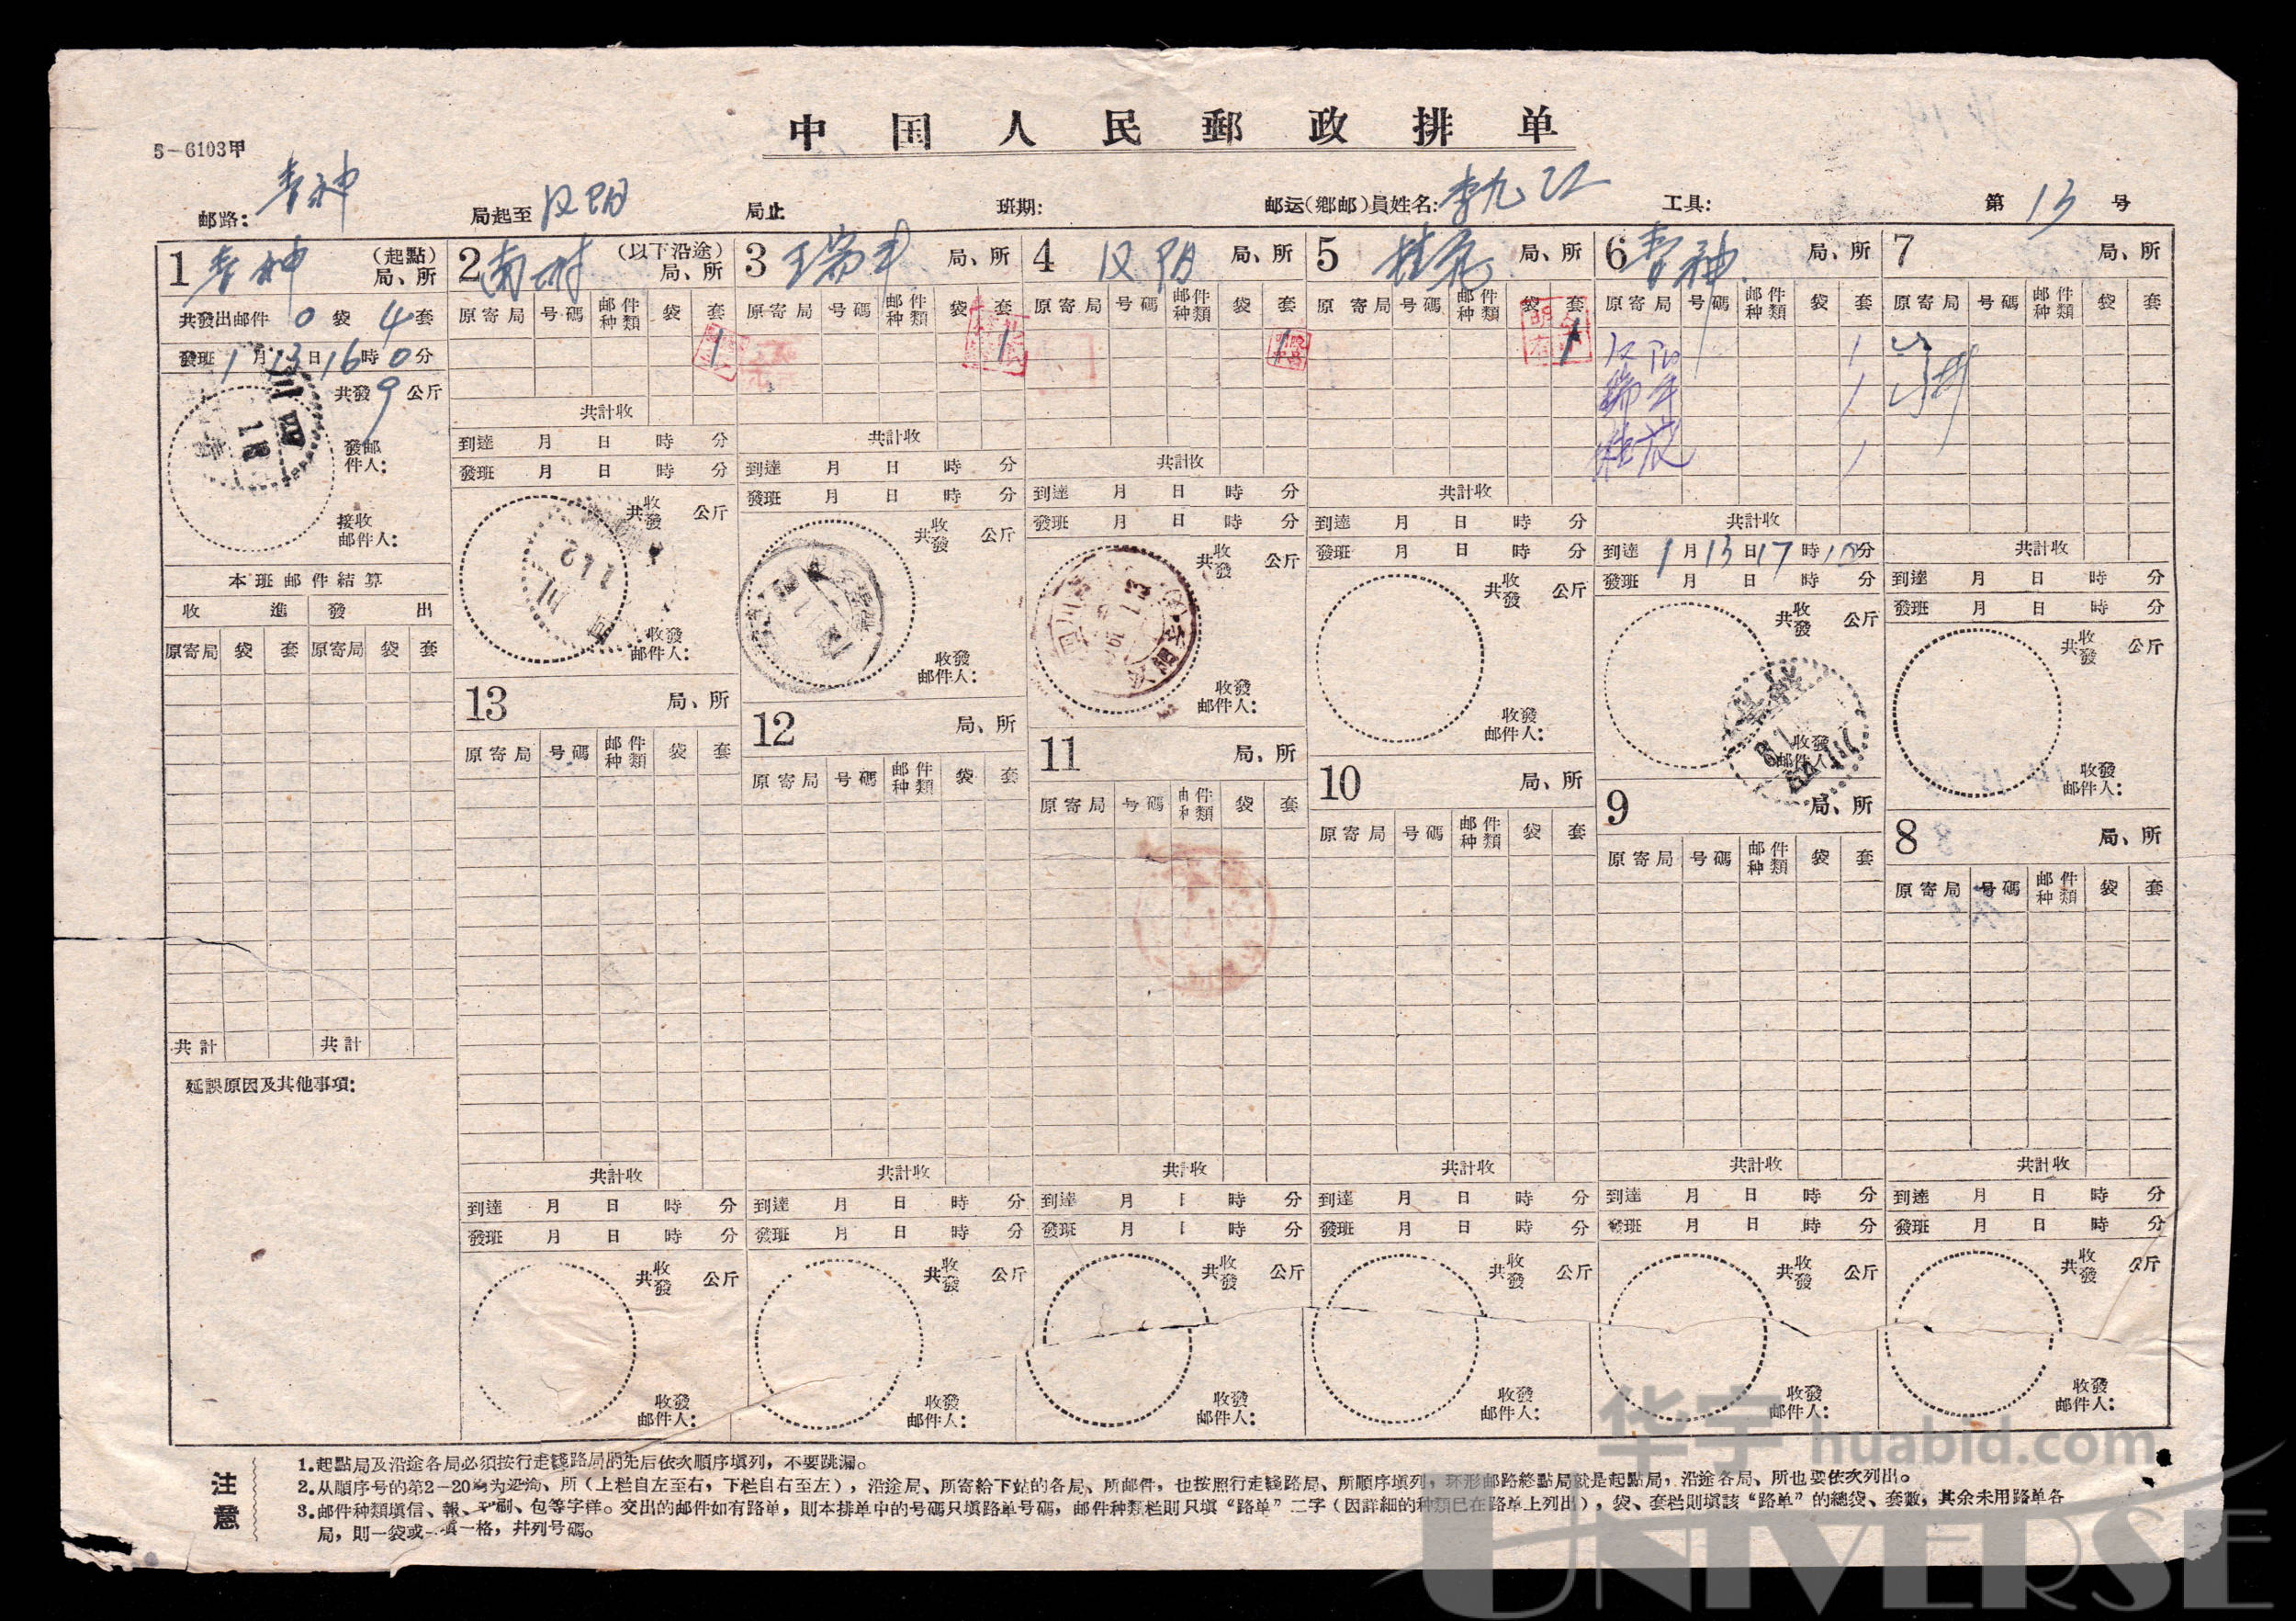 中国人民郵政排单
5-6103甲
邮路: 青神 局起至 汉阳 局止 班期: 邮运(鄉邮)員姓名: 李九江 工具: 第 13 号
1 青神 (起點) 局、所
共發出邮件 0 袋 4 套
發班 1 月 13 日 16 時 0 分
共發 9 公斤
發邮件人:
接收邮件人:
本班邮件結算
收進 發出
原寄局 袋 套 原寄局 袋 套
共計 共計
延誤原因及其他事項:
2 南城 (以下沿途) 局、所
原寄局 号碼 邮件种類 袋 套
1
共計收
到達 月 日 時 分
發班 月 日 時 分
共收發 公斤
收發邮件人:
3 瑞丰 局、所
原寄局 号碼 邮件种類 袋 套
1
共計收
到達 月 日 時 分
發班 月 日 時 分
共收發 公斤
收發邮件人:
4 汉阳 局、所
原寄局 号碼 邮件种類 袋 套
1
共計收
到達 月 日 時 分
發班 月 日 時 分
共收發 公斤
收發邮件人:
5 桂花 局、所
原寄局 号碼 邮件种類 袋 套
1
共計收
到達 月 日 時 分
發班 月 日 時 分
共收發 公斤
收發邮件人:
6 青神 局、所
原寄局 号碼 邮件种類 袋 套
汉阳 1
瑞丰 1
桂花 1
共計收
到達 1 月 13 日 17 時 10 分
發班 月 日 時 分
共收發 公斤
收發邮件人:
四川
7 局、所
原寄局 号碼 邮件种類 袋 套
共計收
到達 月 日 時 分
發班 月 日 時 分
共收發 公斤
收發邮件人:
8 局、所
原寄局 号碼 邮件种類 袋 套
共計收
到達 月 日 時 分
發班 月 日 時 分
共收發 公斤
收發邮件人:
9 局、所
原寄局 号碼 邮件种類 袋 套
共計收
到達 月 日 時 分
發班 月 日 時 分
共收發 公斤
收發邮件人:
10 局、所
原寄局 号碼 邮件种類 袋 套
共計收
到達 月 日 時 分
發班 月 日 時 分
共收發 公斤
收發邮件人:
11 局、所
原寄局 号碼 邮件种類 袋 套
共計收
到達 月 日 時 分
發班 月 日 時 分
共收發 公斤
收發邮件人:
12 局、所
原寄局 号碼 邮件种類 袋 套
共計收
到達 月 日 時 分
發班 月 日 時 分
共收發 公斤
收發邮件人:
13 局、所
原寄局 号碼 邮件种類 袋 套
共計收
到達 月 日 時 分
發班 月 日 時 分
共收發 公斤
收發邮件人:
注意
1.起點局及沿途各局必須按行走綫路局的先后依次順序填列，不要跳漏。
2.从順序号的第2-20為为沿途、所(上栏自左至右，下栏自右至左)，沿途局、所寄給下站的各局、所邮件，也按照行走綫路局、所順序填列，环形邮路終點局就是起點局，沿途各局、所也要依次列出。
3.邮件种類填信、報、印刷、包等字样。交出的邮件如有路单，則本排单中的号碼只填路单号碼，邮件种類栏則只填“路单”二字(因詳細的种類已在路单上列出)，袋、套栏則填該“路单”的總袋、套數，其余未用路单各
局，則一袋或一填一格，幷列号碼。
华宇 huabid.com
UNIVERSE